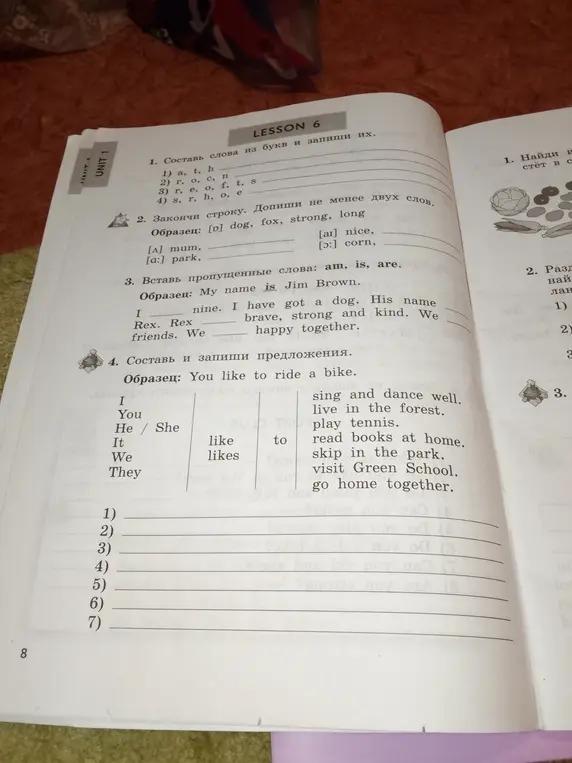 UNIT 1
LESSON 6
1. Составь слова из букв и запиши их.
1) a, t, h
2) r, o, c, n
3) r, e, o, f, t, s
4) s, r, h, o, e
2. Закончи строку. Допиши не менее двух слов.
Образец: [ɒ] dog, fox, strong, long
[ʌ] mum, [aɪ] nice,
[ɑ:] park, [ɔ:] corn,
3. Вставь пропущенные слова: am, is, are.
Образец: My name is Jim Brown.
I nine. I have got a dog. His name
Rex. Rex brave, strong and kind. We
friends. We happy together.
4. Составь и запиши предложения.
Образец: You like to ride a bike.
I sing and dance well.
You live in the forest.
He / She play tennis.
It like to read books at home.
We likes skip in the park.
They visit Green School.
go home together.
1)
2)
3)
4)
5)
6)
7)
8
1. Найди
2.
1)
2)
3
3.